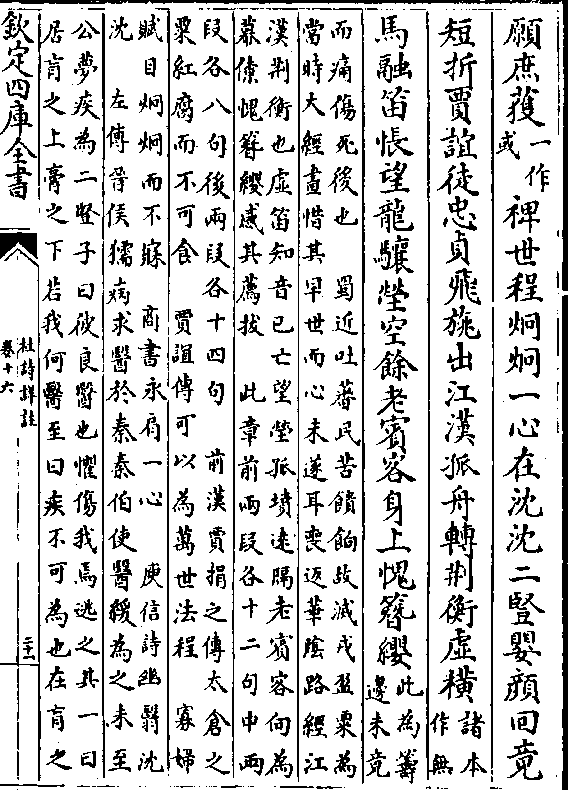 願庶獲一作或裨世程炯炯一心在沈沈二豎嬰顏回竟
短折賈誼徒忠貞飛旐出江漢孤舟轉荆衡虛橫諸本作無
馬融笛悵望龍驤塋空餘老賓客身上愧簪纓此為籌邊未竟
而痛傷死後也　蜀近吐蕃民苦饋餉故減戍盈粟為
當時大經畫惜其早世而心未遂耳喪返華陰路經江
漢荆衡也虛笛知音已亡望塋孤墳遠隔老賓客向為
幕僚愧簪纓感其薦拔　此章前兩段各十二句中兩
段各八句後兩段各十四句　前漢賈捐之傳太倉之
粟紅腐而不可食　賈誼傳可以為萬世法程　寡婦
賦目炯炯而不寐　商書永肩一心　庾信詩幽翳沈
沈　左傳晉侯獳病求醫於秦秦伯使醫緩為之未至
公夢疾為二豎子曰彼良醫也懼傷我焉逃之其一曰
居肓之上膏之下若我何醫至曰疾不可為也在肓之
欽定四庫全書
杜詩詳註
卷十六
二十一